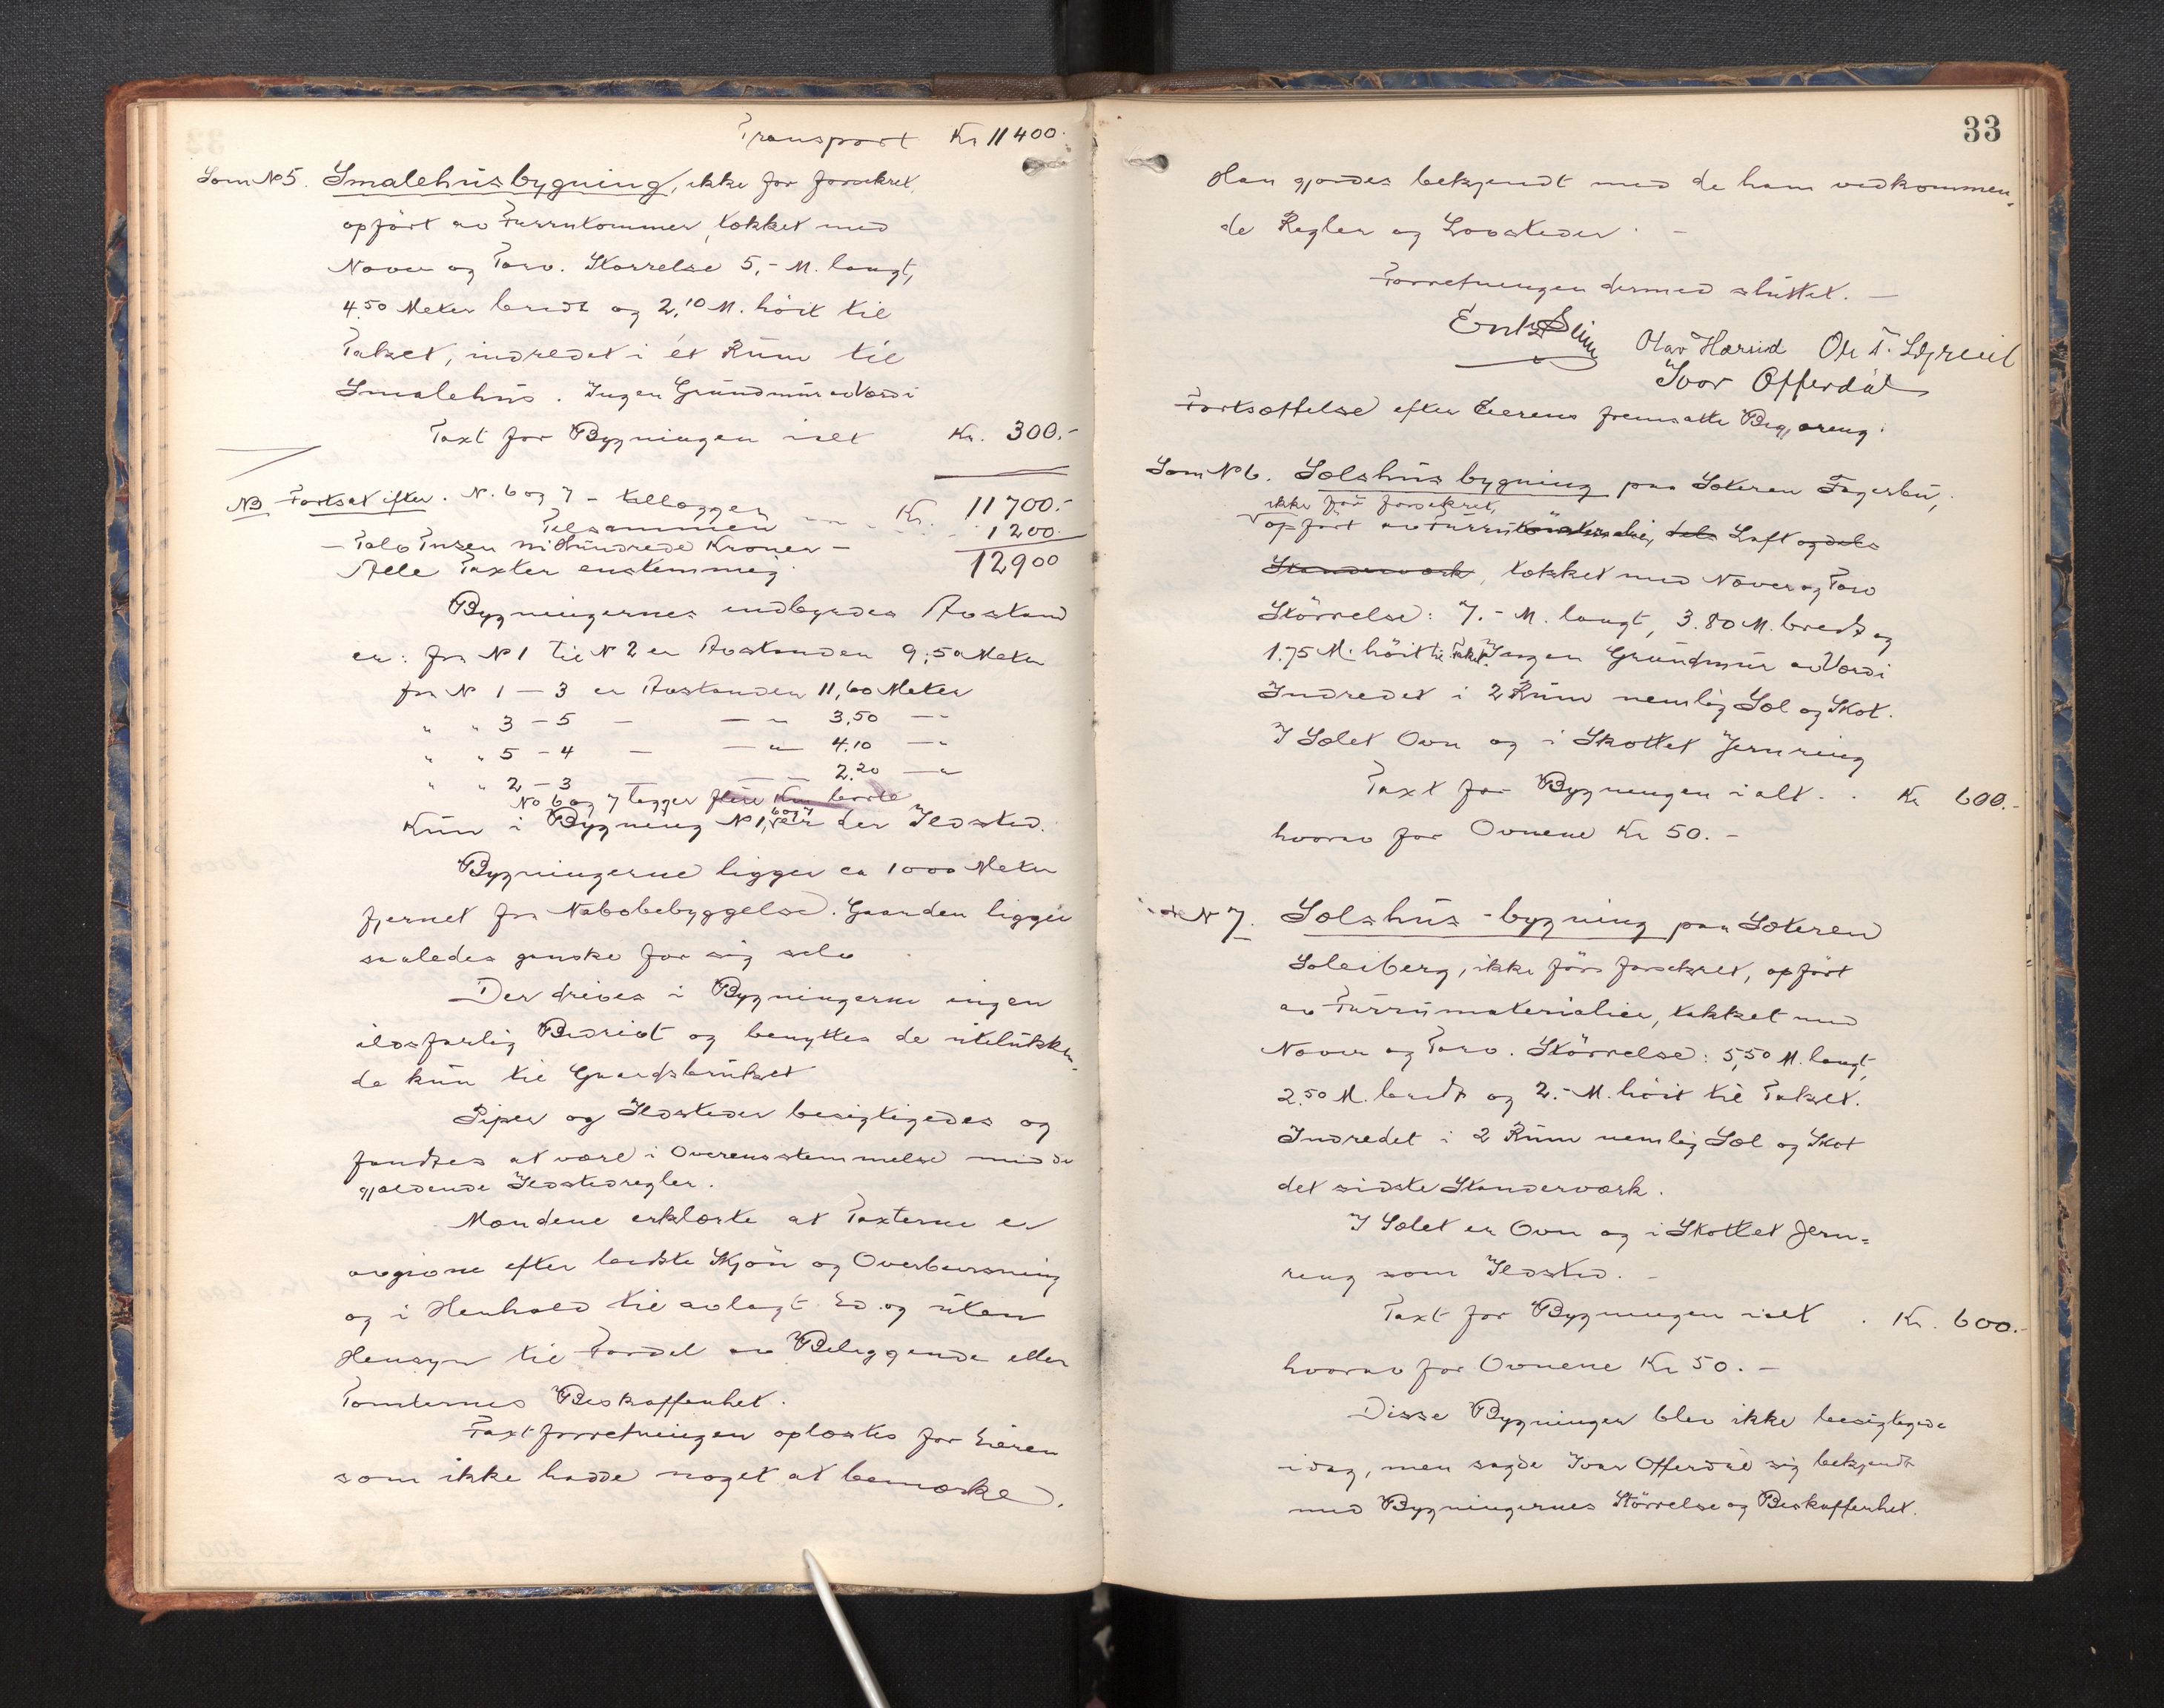 Transport Kr 11400.
Som № 5. Smalehusbygning, ikke før forsekret,
opført av Furrutømmer, tækket med
Næver og Torv. Størrelse 5,- M. langt,
4.50 Meter bredt og 2,10 M. høit til
Taket, indredet i ét Rum til
Smalehus. Ingen Grundmur av Værdi
Taxt for Bygningen ialt Kr. 300.-
NB Fortsat efter. N. 6 og 7 - tillægges Kr. 11700.-
Tilsammen 1200.-
- Tolv Tusen ni Hundrede Kroner - 12900
Alle Taxter enstemmig.
Bygningernes indbyrdes Avstand
er: fra № 1 til № 2 er Avstanden 9,50 Meter
fra № 1 — 3 er Avstanden 11,60 Meter
" " 3 — 5 — — " 3,50 — "
" " 5 — 4 — — " 4.10 — "
" " 2 — 3 — — 2.20 — "
No 6 og 7 ligger flere Km borte
Kun i Bygning № 1, 6 og 7 er der Ildsted.
Bygningerne ligger ca 1000 Meter
fjernet fra Nabobebyggelse. Gaarden ligger
saaledes ganske for sig selv.
Der drives i Bygningerne ingen
ildsfarlig Bedrivt og benyttes de utelukken-
de kun til Gaardsbruket
Piper og Ildsteder besigtigedes og
fandtes at være i Overensstemmelse med de
gjældende Ildstedregler.
Mændene erklærte at Taxterne er
avgivne efter bedste Skjøn og Overbevisning
og i Henhold til avlagt Ed og uten
Hensyn til Fordel av Beliggende eller
Tomternes Beskaffenhet.
Taxtforretningen oplæstes for Eieren
som ikke hadde noget at bemærke.
33
Han gjordes bekjendt med de ham vedkommen-
de Regler og Lovsteder. -
Forretningen dermed sluttet. —
Olav Hærsid Ivar Offerdal
Fortsættelse efter Eierens fremsatte Begjæreng.
Som № 6. Sælshus bygning paa Sæteren Fagerbu,
ikke før forsekret,
opført av Furrumaterialier, dels Laft og dels
Standerværk, tækket med Næver og Torv
Størrelse: 7.- M. langt, 3.80 M. bredt og
1.75 M. høit til Taket. Ingen Grundmur av Værdi
Indredet i 2 Rum nemlig Sæl og Skot.
I Sælet Ovn og i Skottet Jernring
Taxt for Bygningen ialt . . Kr 600.-
hvorav for Ovnene Kr 50. -
№ 7. Sælshus - bygning paa Sæteren
Soleiberg, ikke før forsekret, opført
av Furrumaterialier, tækket med
Næver og Torv. Størrelse: 5,50 M. langt,
2.50 M. bredt og 2.- M. høit til Taket.
Indredet i 2 Rum nemlig Sæl og Skot
det sidste Standerværk.
I Sælet er Ovn og i Skottet Jern-
reng som Ildsted. -
Taxt for Bygningen ialt . Kr. 600.-
hvorav for Ovnene Kr 50. -
Disse Bygninger blev ikke besigtigede
idag, men sagde Ivar Offerdal sig bekjendt
med Bygningernes Størrelse og Beskaffenhet.